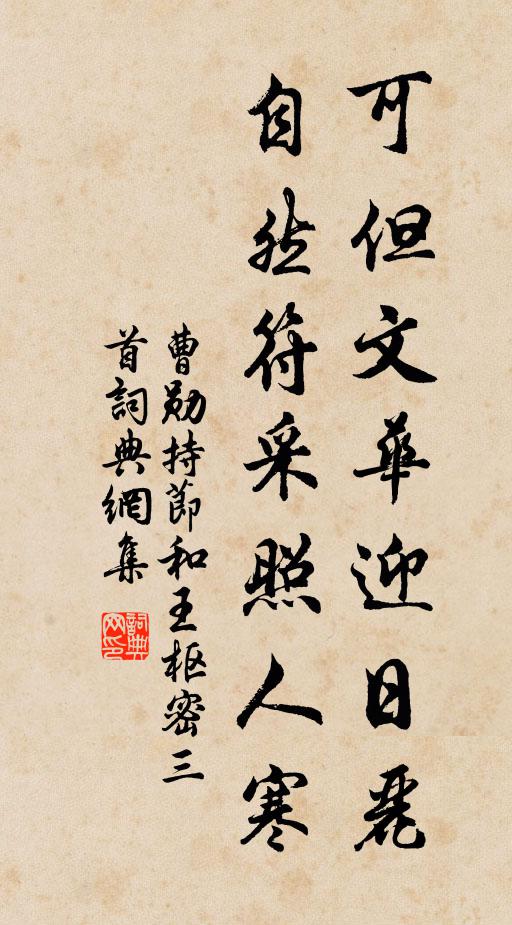 可但文華迎日麗
自然符采照人寒
曹勛持節和王枢密三
首詞典網集
詞典
网印